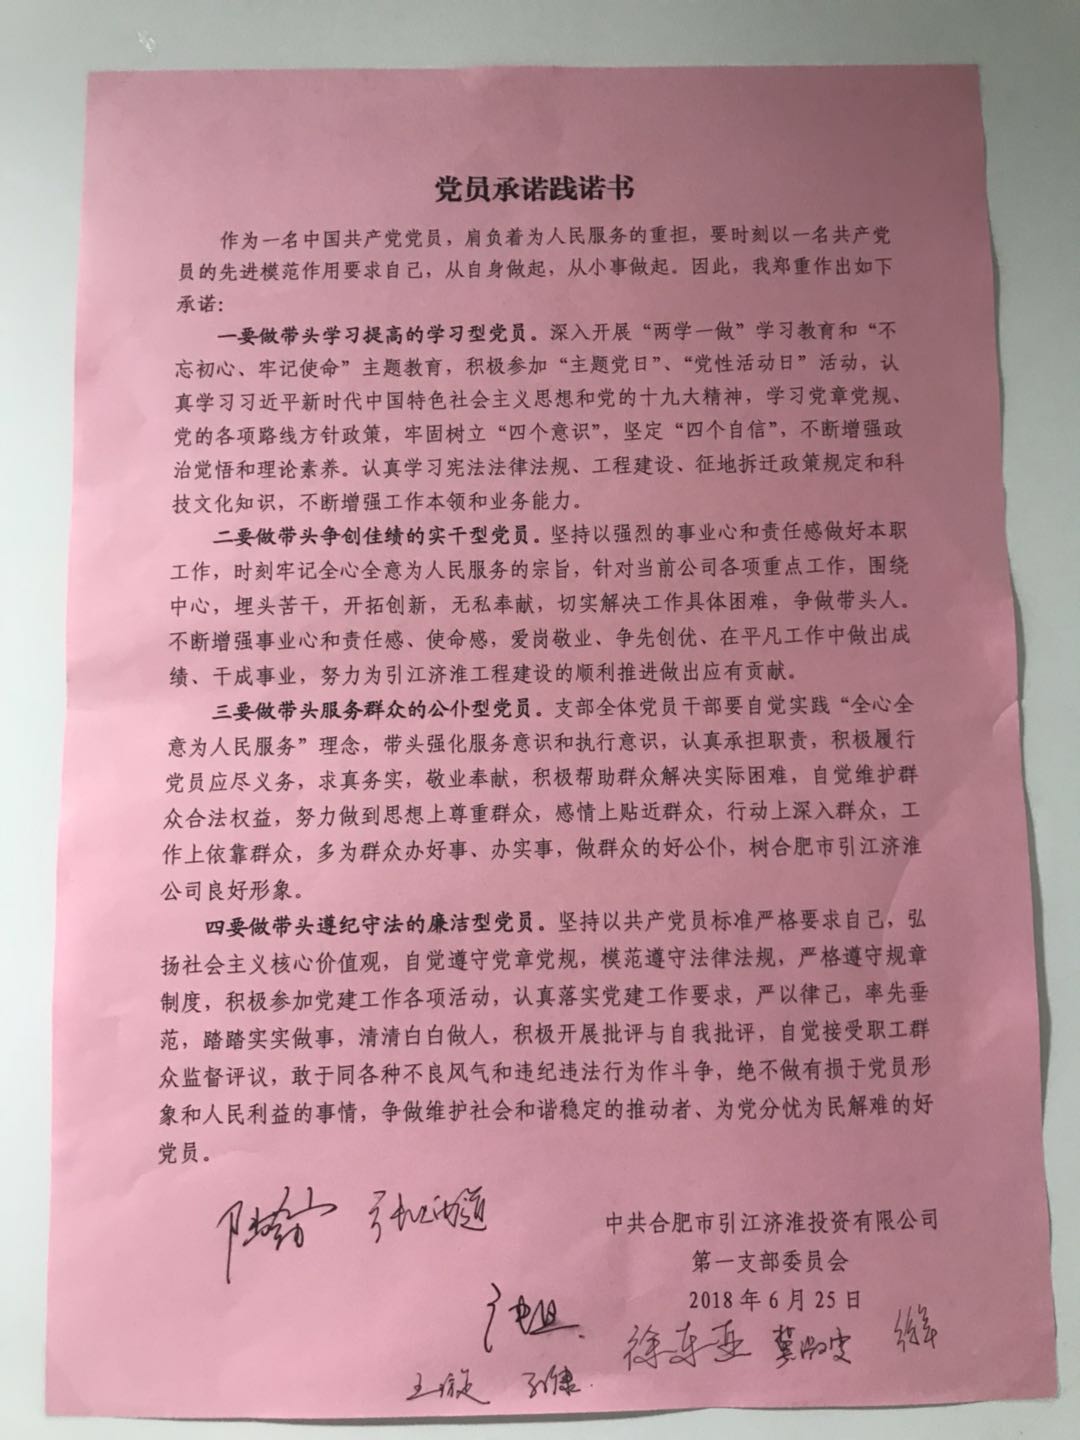 党员承诺践诺书
作为一名中国共产党党员，肩负着为人民服务的重担，要时刻以一名共产党
员的先进模范作用要求自己，从自身做起，从小事做起。因此，我郑重作出如下
承诺：
一要做带头学习提高的学习型党员。深入开展“两学一做”学习教育和“不
忘初心、牢记使命”主题教育，积极参加“主题党日”、“党性活动日”活动，认
真学习习近平新时代中国特色社会主义思想和党的十九大精神，学习党章党规、
党的各项路线方针政策，牢固树立“四个意识”，坚定“四个自信”，不断增强政
治觉悟和理论素养。认真学习宪法法律法规、工程建设、征地拆迁政策规定和科
技文化知识，不断增强工作本领和业务能力。
二要做带头争创佳绩的实干型党员。坚持以强烈的事业心和责任感做好本职
工作，时刻牢记全心全意为人民服务的宗旨，针对当前公司各项重点工作，围绕
中心，埋头苦干，开拓创新，无私奉献，切实解决工作具体困难，争做带头人。
不断增强事业心和责任感、使命感，爱岗敬业、争先创优、在平凡工作中做出成
绩、干成事业，努力为引江济淮工程建设的顺利推进做出应有贡献。
三要做带头服务群众的公仆型党员。支部全体党员干部要自觉实践“全心全
意为人民服务”理念，带头强化服务意识和执行意识，认真承担职责，积极履行
党员应尽义务，求真务实，敬业奉献，积极帮助群众解决实际困难，自觉维护群
众合法权益，努力做到思想上尊重群众，感情上贴近群众，行动上深入群众，工
作上依靠群众，多为群众办好事、办实事，做群众的好公仆，树合肥市引江济淮
公司良好形象。
四要做带头遵纪守法的廉洁型党员。坚持以共产党员标准严格要求自己，弘
扬社会主义核心价值观，自觉遵守党章党规，模范遵守法律法规，严格遵守规章
制度，积极参加党建工作各项活动，认真落实党建工作要求，严以律己，率先垂
范，踏踏实实做事，清清白白做人，积极开展批评与自我批评，自觉接受职工群
众监督评议，敢于同各种不良风气和违纪违法行为作斗争，绝不做有损于党员形
象和人民利益的事情，争做维护社会和谐稳定的推动者、为党分忧为民解难的好
党员。
中共合肥市引江济淮投资有限公司
第一支部委员会
2018年6月25日
徐东亚
王璇